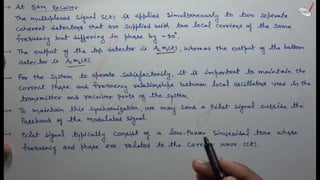 → At QAM Receiver
The multiplexed signal s(t) is applied simultaneously to two separate
coherent detectors that are supplied with two local carriers of the same
frequency but differing in phase by -90°.
→ The output of the top detector is A m₁(t), whereas the output of the bottom
detector is A m₂(t).
→ For the system to operate satisfactorily it is important to maintain the
correct phase and frequency relationships between local oscillators used in the
transmitter and receiver parts of the system.
→ To maintain this synchronization, we may send a Pilot signal outside the
Passband of the modulated signal.
→ Pilot signal typically consist of a low-Power sinusoidal tone whose
frequency and phase are related to the carrier wave c(t).